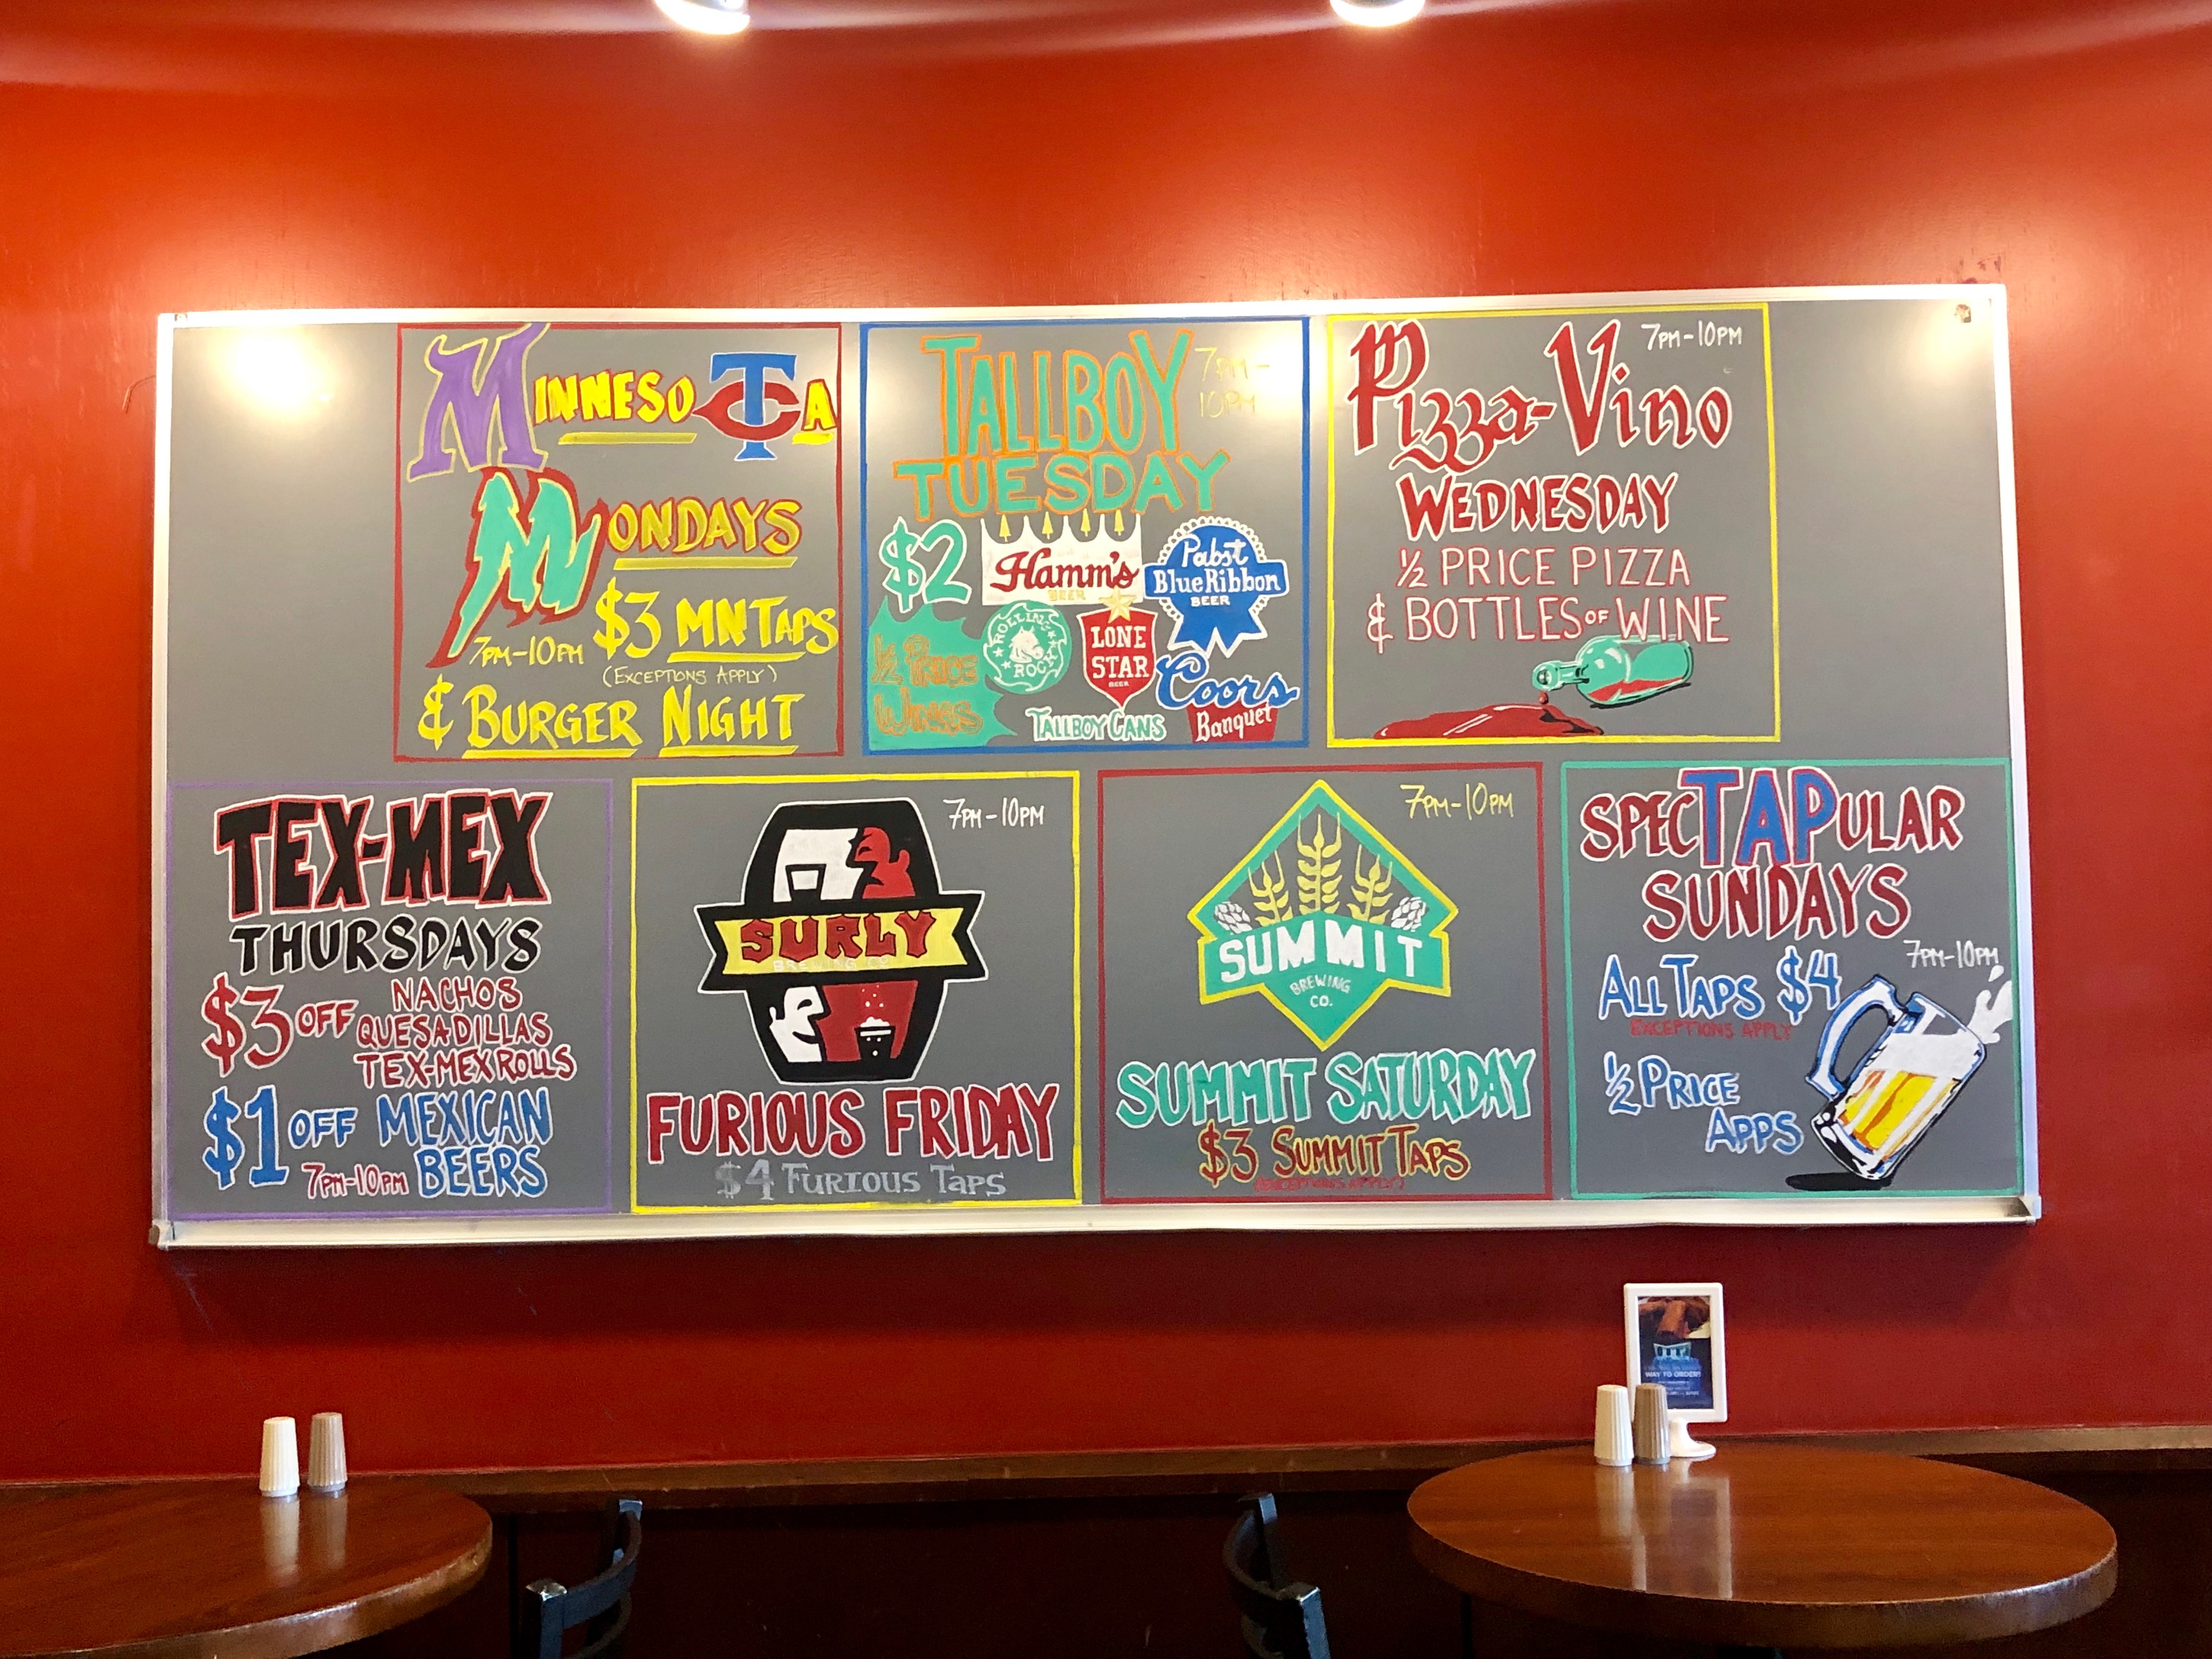 MINNESOTA
MONDAYS
$3 MN TAPS
7PM-10PM
(EXCEPTIONS APPLY)
& BURGER NIGHT
TALLBOY
TUESDAY
7PM-
10PM
$2
Hamm's
BEER
Pabst
Blue Ribbon
BEER
ROLLING
ROCK
LONE
STAR
BEER
Coors
Banquet
1/2 PRICE
WINGS
TALLBOY CANS
Pizza-Vino
7PM-10PM
WEDNESDAY
1/2 PRICE PIZZA
& BOTTLES OF WINE
TEX-MEX
THURSDAYS
$3 OFF NACHOS
QUESADILLAS
TEX-MEX ROLLS
$1 OFF MEXICAN
BEERS
7PM-10PM
7PM-10PM
SURLY
BREWING CO
FURIOUS FRIDAY
$4 FURIOUS TAPS
7PM-10PM
SUMMIT
BREWING
CO.
SUMMIT SATURDAY
$3 SUMMIT TAPS
(EXCEPTIONS APPLY)
SPECTAPULAR
SUNDAYS
7PM-10PM
ALL TAPS $4
EXCEPTIONS APPLY
1/2 PRICE
APPS
WAY TO ORDER!